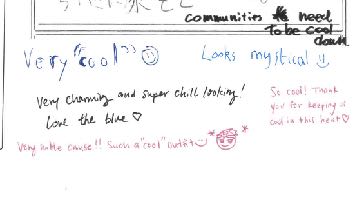 communities need
To be cool
down
Very "cool" ☺
Looks mystical
Very charming and super chill looking!
Love the blue ♡
So cool! Thank
you for keeping us
cool in this heat ♡
Very in the cause!! Such a "cool" outfit